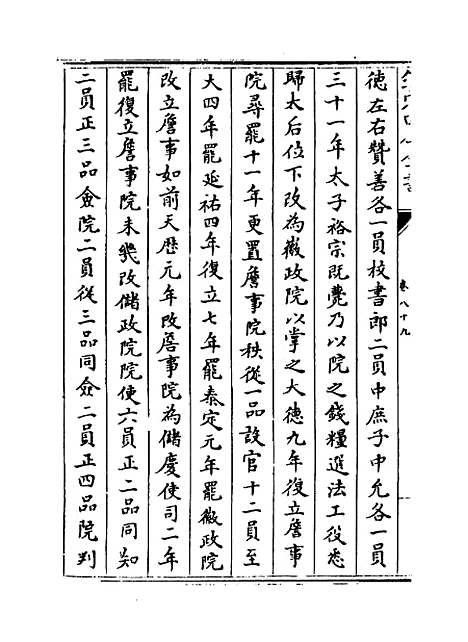 德左右贊善各一員校書郎二員中庶子中允各一員
三十一年太子裕宗既薨乃以院之錢糧選法工役悉
歸太后位下改為徽政院以掌之大德九年復立詹事
院尋罷十一年更置詹事院秩從一品設官十二員至
大四年罷延祐四年復立七年罷泰定元年罷徽政院
改立詹事如前天歴元年改詹事院為儲慶使司二年
罷復立詹事院未幾改儲政院院使六員正二品同知
二員正三品僉院二員從三品同僉二員正四品院判
卷八十九